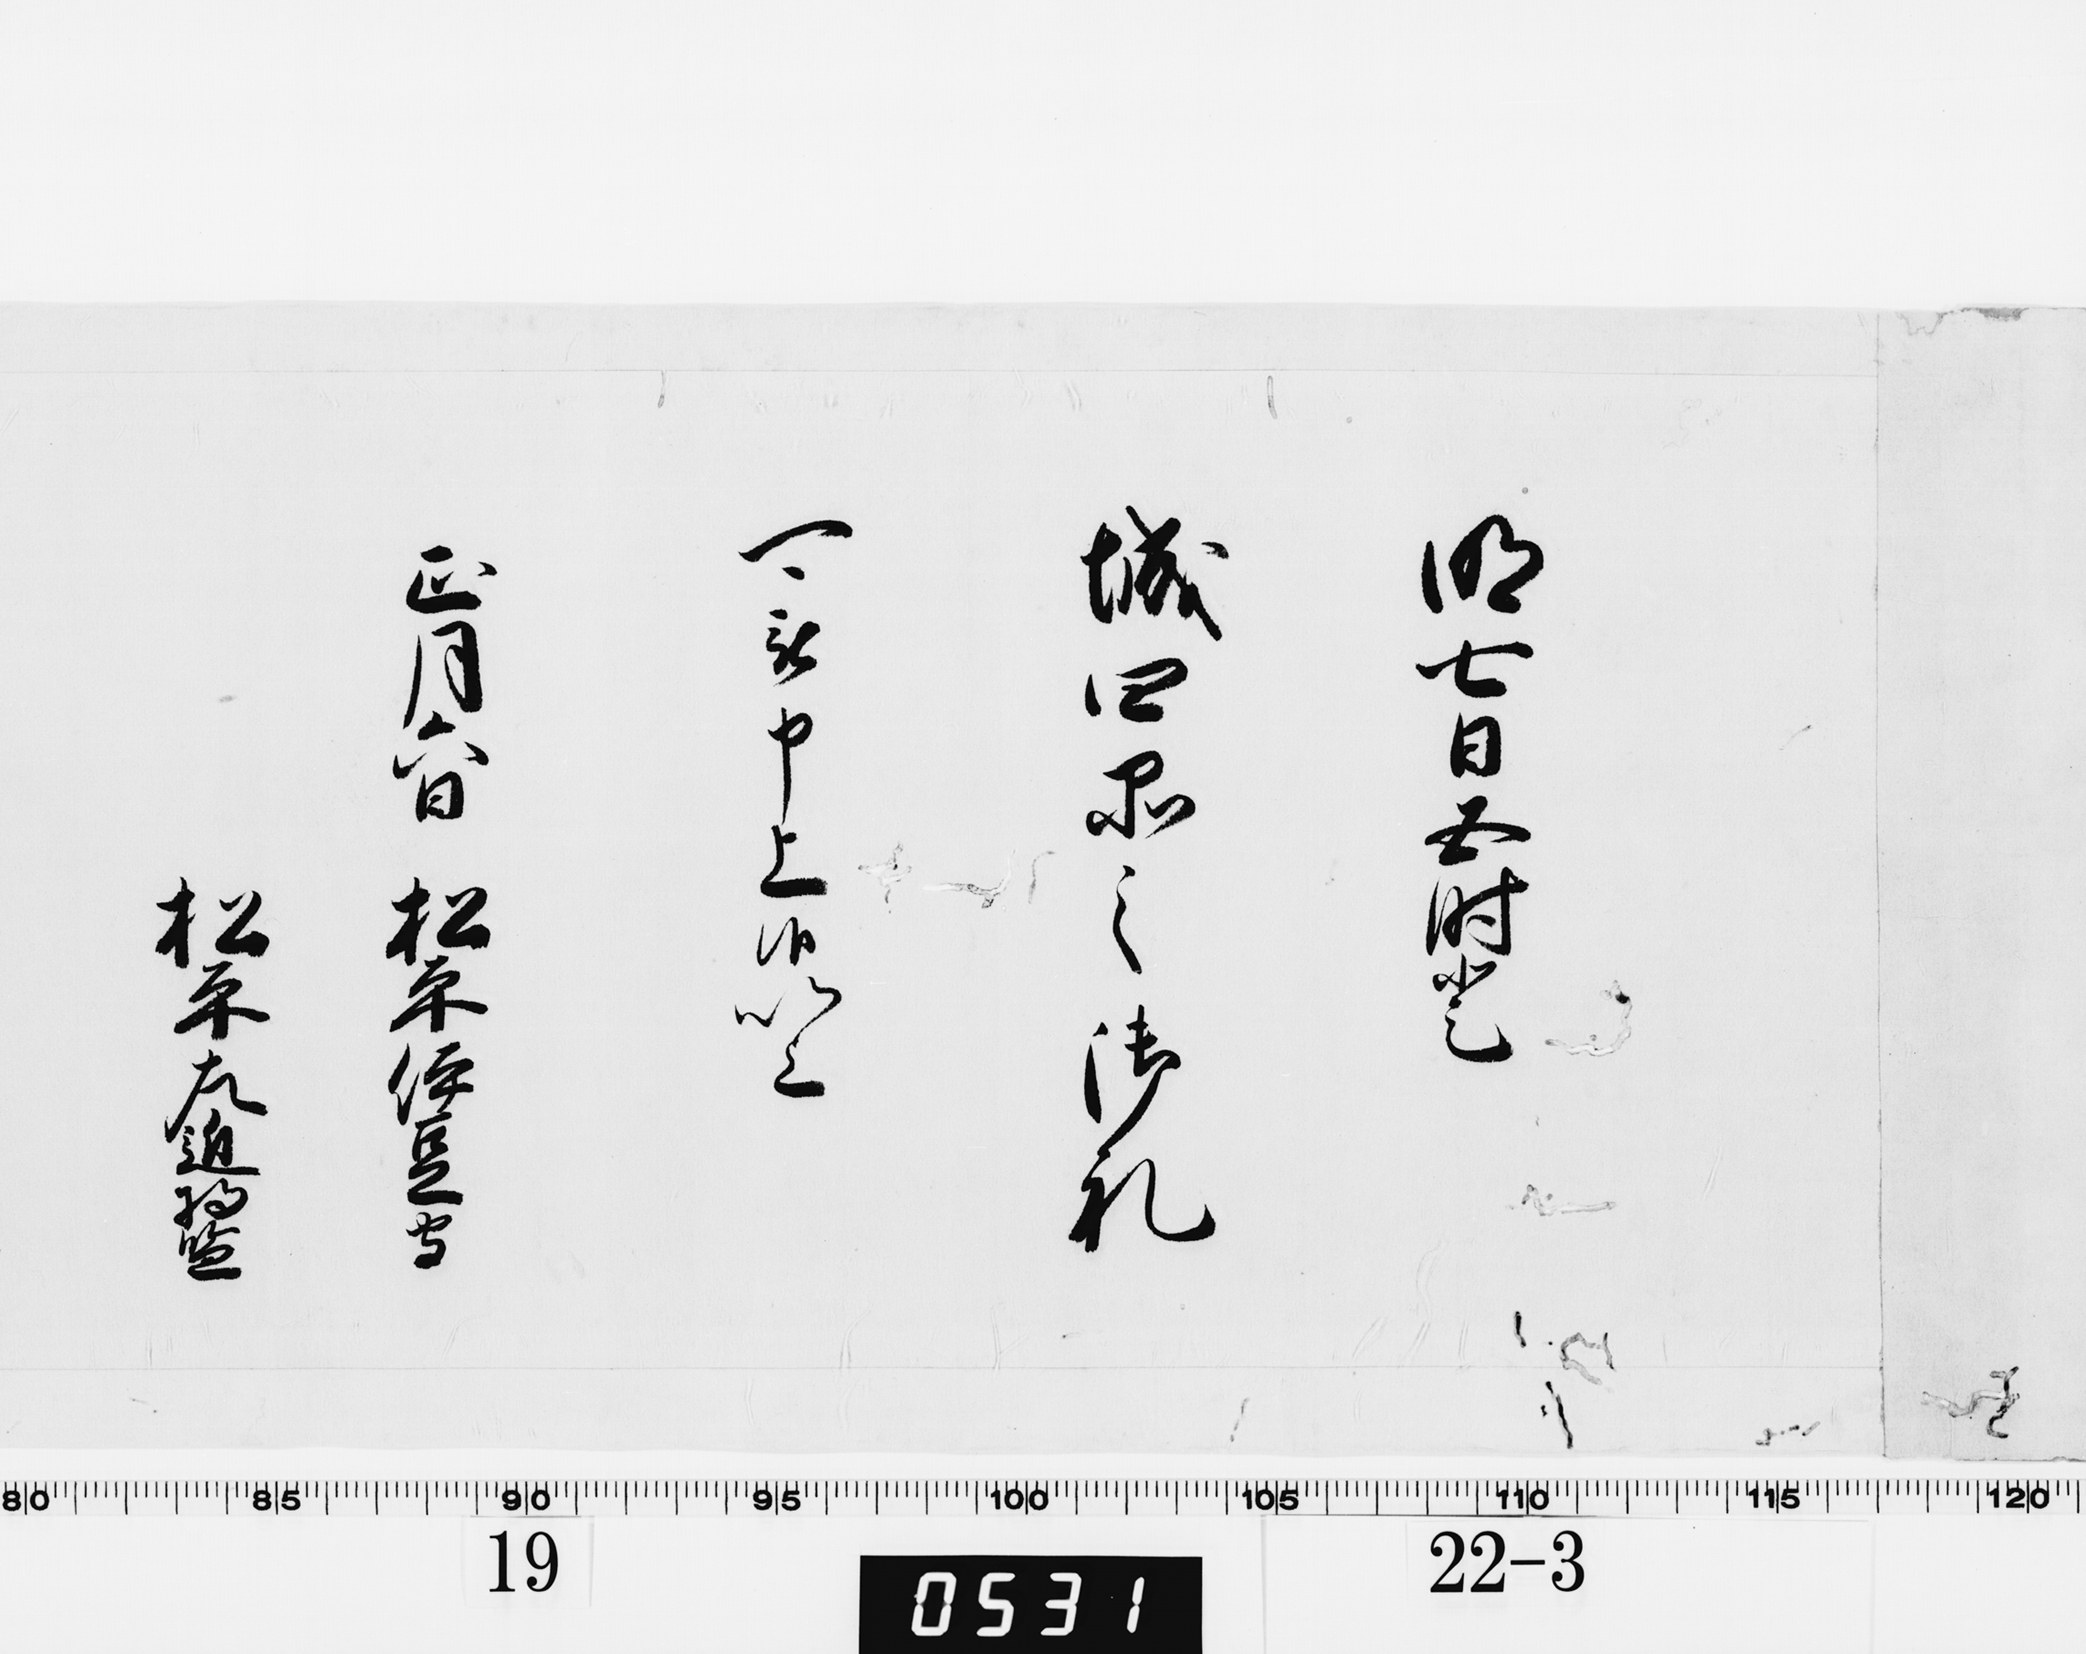 明七日五時登
城四品之御礼
可被申上候以上
正月六日 松平伊豆守
松平左近将監
80 85 90 95 100 105 110 115 120
19
0531
22-3